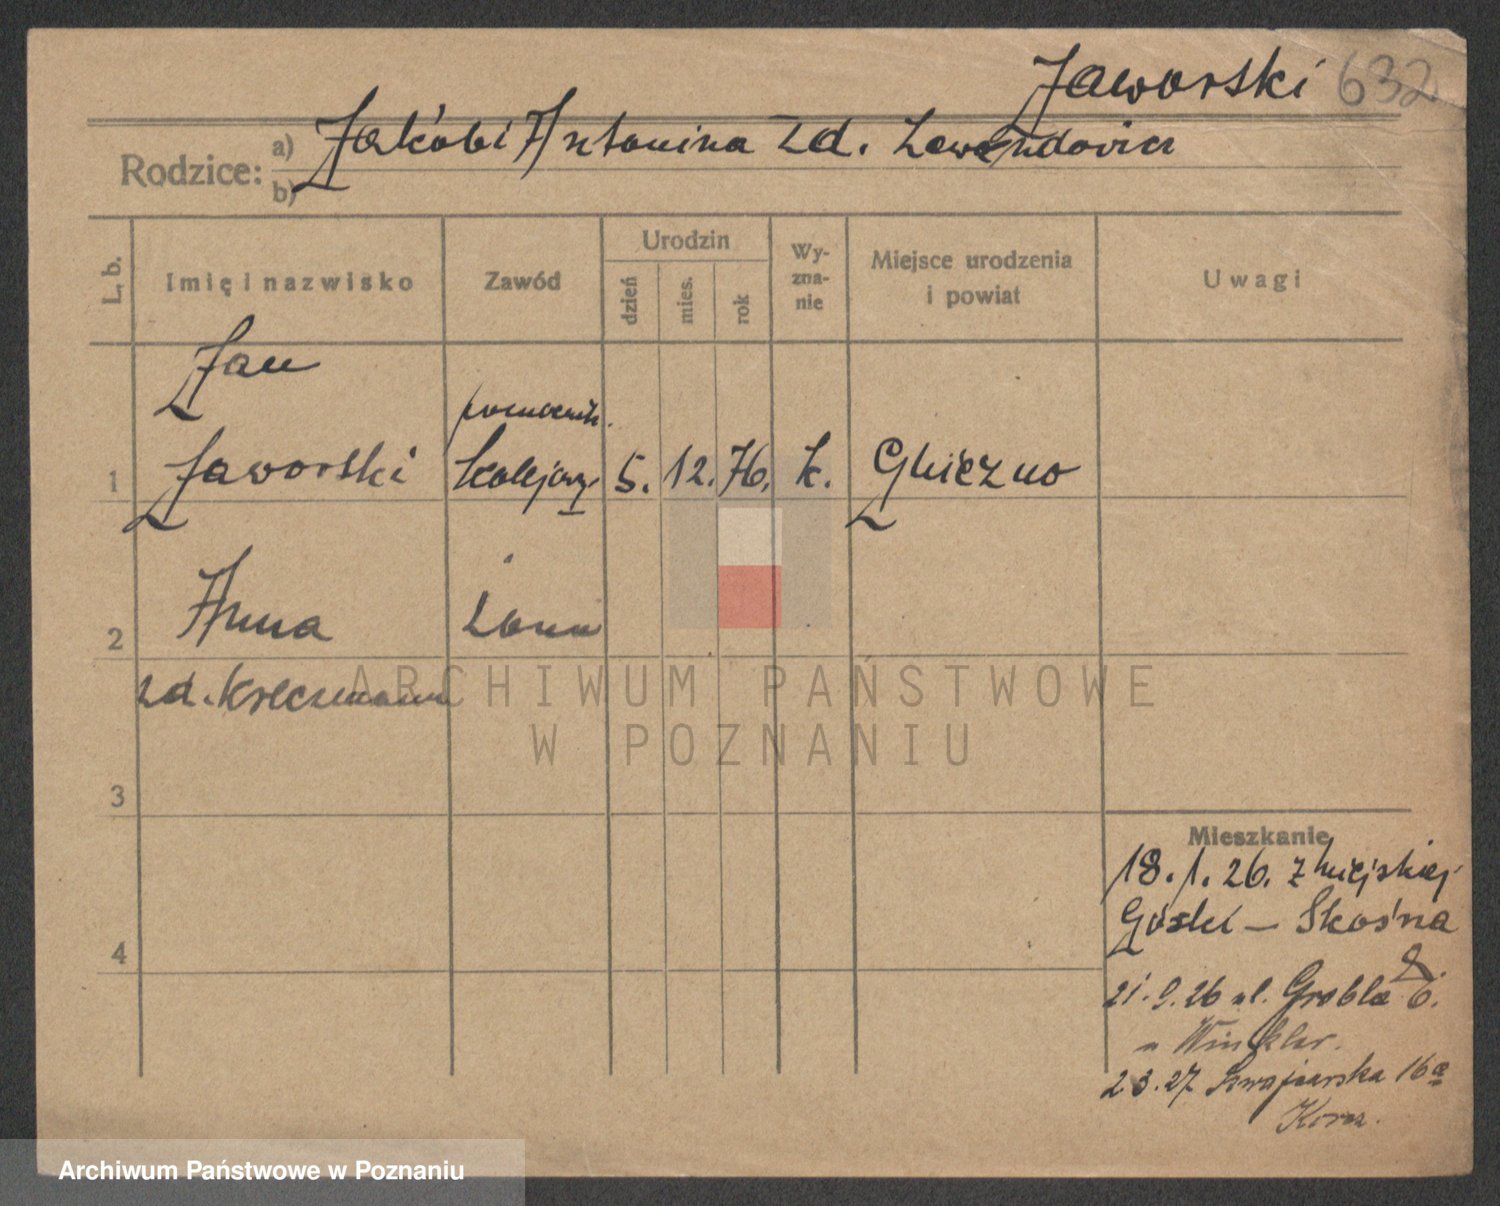 Jaworski 632
Rodzice: a) Jakób i Antonina zd. Lewandowicz
b)
L. b. Imię i nazwisko Zawód Urodzin dzień mies. rok Wy-zna-nie Miejsce urodzenia i powiat Uwagi
Jan
pomocnik
1 Jaworski kolejowy 5. 12. 76. k. Gniezno
2 Anna żona
zd.
ARCHIWUM PAŃSTWOWE
W POZNANIU
3
Mieszkanie
18.1.26. z miejskiej
Górki — Skośna
4
21.9.26 ul. Grobla 6.
Winkler.
23.27 Szwajcarska 16a
Archiwum Państwowe w Poznaniu